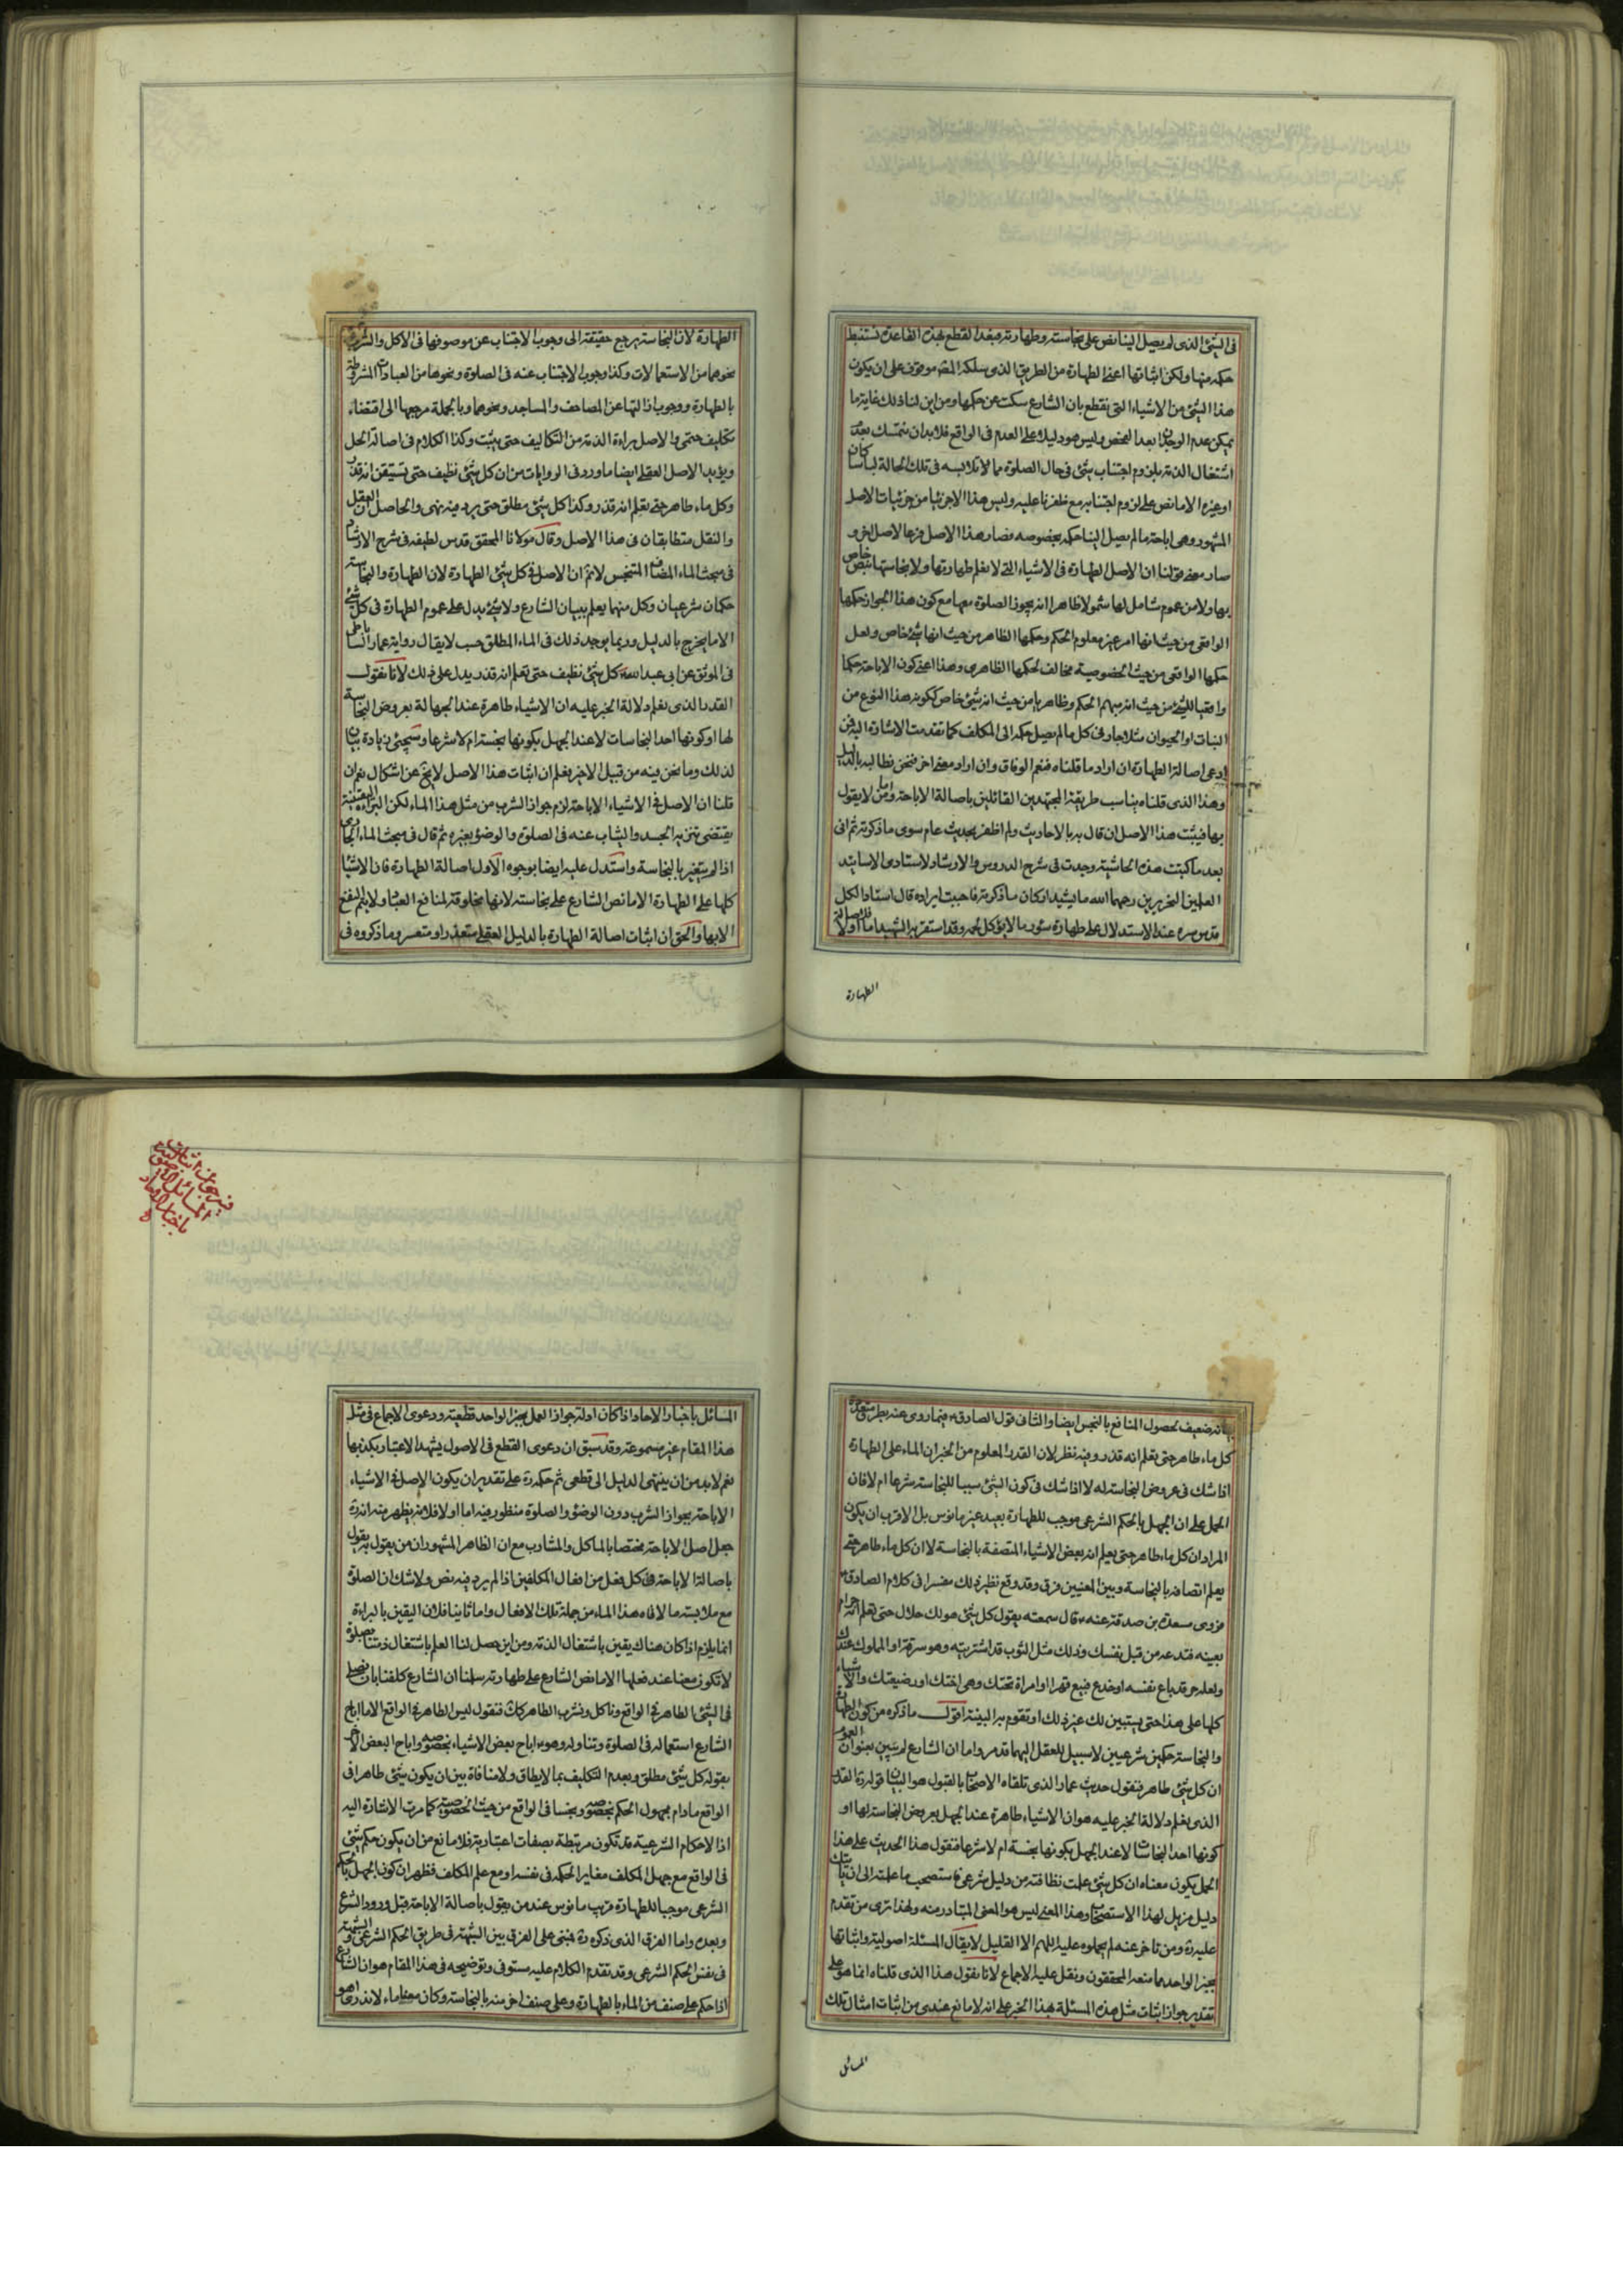 فى الشئ الذى لم يصل الينا نص على نجاسته وطهارته فبعد القطع بهذه القاعدة نستنبط
حكمه منها ولكن اثباتها اعنى الطهارة من الطريق الذى سلكه المقر موقوف على ان يكون
هذا الشئ من الاشياء التى نقطع بان الشارع سكت عن حكمها ومن اين لنا ذلك غاية ما
يمكن عدم الوجدان بعد الفحص وليس هو دليلا على العدم فى الواقع فلا بد ان نتمسك بعدم
اشتغال الذمة بلزوم اجتناب شئ فى حال الصلوة مما لا تلابسه فى تلك الحالة لباسا كان
او غيره الا ما نص على لزوم اجتنابه مع ظفرنا عليه وليس هذا الا جزئيا من جزئيات الاصل
المشهور وهى اباحة ما لم يصل الينا حكمه بخصوصه فصار هذا الاصل فرعا لاصل اخر و
صار معنى قولنا ان الاصل الطهارة فى الاشياء التى لا نعلم طهارتها ولا نجاستها بنص خاص
بها ولا من عموم شامل لها شمولا ظاهرا انه يجوز الصلوة معها مع كون هذا الجواز حكمها
الواقعى من حيث انها امر غير معلوم الحكم وحكمها الظاهر من حيث انها شئ خاص ولعل
حكمها الواقعى من حيث الخصوصية مخالف لحكمها الظاهرى وهذا اعنى كون الاباحة حكما
واقعيا للشئ من حيث انه مبهم الحكم وظاهريا من حيث انه شئ خاص ككونه هذا النوع من
النبات او الحيوان مثلا جار فى كل ما لم يصل حكمه الى المكلف كما تقدمت الاشارة اليه فمن
ادعى اصالة الطهارة ان اراد ما قلناه فنعم الوفاق وان اراد معنى اخر فنحن نطالبه بالدليل
وهذا الذى قلناه يناسب طريقة المجتهدين القائلين باصالة الاباحة واما من لا يقول
بها فيثبت هذا الاصل ان قال به بالاحاديث ولم اظفر بحديث عام سوى ما ذكرته ثم انى
بعد ما كتبت هذه الحاشية وجدت فى شرح الدروس والارشاد لاستادى الاساتيد
العلمين النحريرين رحمهما الله ما يشيد اركان ما ذكرته فاحببت ايراده قال استاد الكل
قدس سره عند الاستدلال على طهارة سؤر ما لا يؤكل لحمه وقد استقر به الشهيد اما اولا فلاصالة
الطهارة
الطهارة لان النجاسة يرجع حقيقته الى وجوب الاجتناب عن موصوفها فى الاكل والشرب و
نحوهما من الاستعمالات وكذا وجوب الاجتناب عنه فى الصلوة ونحوها من العبادات المشروطة
بالطهارة ووجوب ازالتها عن المصاحف والمساجد ونحوهما وبالجملة مرجعها الى اقتضاء
تكليف حتمى والاصل براءة الذمة من التكاليف حتى يثبت وكذا الكلام فى اصالة الحل
ويؤيد الاصل العقلى ايضا ما ورد فى الروايات من ان كل شئ نظيف حتى تستيقن انه قذر
وكل ماء طاهر حتى تعلم انه قذر وكذا كل شئ مطلق حتى يرد فيه نهى والحاصل ان العقل
والنقل متطابقان فى هذا الاصل وقال مولانا المحقق قدس لطيفه فى شرح الارشاد
فى مبحث الماء المضاف المتنجس لا نم ان الاصل فى كل شئ الطهارة لان الطهارة والنجاسة
حكمان شرعيان وكل منهما يعلم ببيان الشارع ولا شئ يدل على عموم الطهارة فى كل شئ
الا ما يخرج بالدليل وربما يوجد ذلك فى الماء المطلق حسب لا يقال رواية عمار الساباطى
فى الموثق عن ابى عبد الله كل شئ نظيف حتى تعلم انه قذر يدل على ذلك لانا نقول
القدر الذى نعلم دلالة الخبر عليه ان الاشياء طاهرة عند الجهالة بعروض النجاسة
لها او كونها احد النجاسات لا عند الجهل بكونها نجسة ام لا شرعا وسيجئ زيادة بيان
لذلك وما نحن فيه من قبيل الاخير فعلم ان اثبات هذا الاصل لا يخ عن اشكال نعم ان
قلنا ان الاصل فى الاشياء الاباحة لزم جواز الشرب من مثل هذا الماء لكن البراءة اليقينية
يقتضى تنزيه الجسد والثياب عنه فى الصلوة والوضوء بغيره ثم قال فى مبحث الماء الجارى
اذا لم يتغير بالنجاسة واستدل عليه ايضا بوجوه الاول اصالة الطهارة فان الاشياء
كلها على الطهارة الا ما نص الشارع على نجاسته لانها مخلوقة لمنافع العباد ولا يتم النفع
الا بها والحق ان اثبات اصالة الطهارة بالدليل العقلى متعذر او متعسر وما ذكروه فى
بيانه ضعيف لحصول المنافع بالنجس ايضا والثانى قول الصادق فيما روى عنه بطرق متعددة
كل ماء طاهر حتى تعلم انه قذر وفيه نظر لان القدر المعلوم من الخبر ان الماء على الطهارة
اذا شك فى عروض النجاسة له لا اذا شك فى كون الشئ سببا للنجاسة شرعا ام لا فان
الحمل على ان الجهل بالحكم الشرعى موجب للطهارة بعيد غير مانوس بل الاقرب ان يكون
المراد ان كل ماء طاهر حتى يعلم انه بعض الاشياء المتصفة بالنجاسة لا ان كل ماء طاهر حتى
يعلم اتصافه بالنجاسة وبين المعنيين فرق وقد وقع نظير ذلك مفسرا فى كلام الصادق
فروى مسعدة بن صدقة عنه قال سمعته يقول كل شئ هو لك حلال حتى تعلم انه حرام
بعينه فتدعه من قبل نفسك وذلك مثل الثوب قد اشتريته وهو سرقة او المملوك عندك
ولعله حر قد باع نفسه او خدع فبيع قهرا او امراة تحتك وهى اختك او رضيعتك والاشياء
كلها على هذا حتى يستبين لك غير ذلك او تقوم به البينة اقول ما ذكره من كون الطهارة
والنجاسة حكمين شرعيين لا سبيل للعقل اليهما قد مر واما ان الشارع لم يبين بعنوان العموم
ان كل شئ طاهر فنقول حديث عمار الذى تلقاه الاصحاب بالقبول هو البيان قوله ره القدر
الذى نعلم دلالة الخبر عليه هو ان الاشياء طاهرة عند الجهل بعروض النجاسة لها او
كونها احد النجاسات لا عند الجهل بكونها نجسة ام لا شرعا فنقول هذا الحديث على هذا
الحمل يكون معناه ان كل شئ علمت نظافته من دليل شرعى فاستصحب ما علمته الى ان ياتيك
دليل مزيل لهذا الاستصحاب وهذا المعنى ليس هو المعنى المتبادر منه ولهذا ترى من تقدم
عليه ره ومن تاخر عنه لم يحملوه عليه اللهم الا القليل لا يقال المسئلة اصولية واثباتها
بخبر الواحد مما منعه المحققون ونقل عليه الاجماع لانا نقول هذا الذى قلناه انما هو على
تقدير جواز اثبات مثل هذه المسئلة بهذا الخبر على انه لا مانع عندى من اثبات امثال تلك
المسائل
فيه جواز اثبات
المسائل الاصولية
باخبار الاحاد
المسائل باخبار الاحاد اذا كان ادلة جواز العمل بخبر الواحد قطعية ودعوى الاجماع فى مثل
هذا المقام غير مسموعة وقد سبق ان دعوى القطع فى الاصول يشهد الاعتبار بكذبها
نعم لا بد من ان ينتهى الدليل الى قطعى ثم حكمه ره على تقدير ان يكون الاصل فى الاشياء
الاباحة بجواز الشرب دون الوضوء والصلوة منظور فيه اما اولا فلانه يظهر منه انه ره
جعل اصل الاباحة مختصا بالماكل والمشارب مع ان الظاهر المشهور ان من يقول به يقول
باصالة الاباحة فى كل فعل من افعال المكلفين اذا لم يرد فيه نص ولا شك ان الصلوة
مع ملابسة ما لاقاه هذا الماء من جملة تلك الافعال واما ثانيا فلان اليقين بالبراءة
انما يلزم اذا كان هناك يقين باشتغال الذمة ومن اين حصل لنا العلم باشتغال ذمتنا بصلوة
لا تكون معنا عند فعلها الا ما نص الشارع على طهارته سلمنا ان الشارع كلفنا بان نصلى
فى الشئ الطاهر فى الواقع وناكل ونشرب الطاهر كك فنقول ليس الطاهر فى الواقع الا ما اباح
الشارع استعماله فى الصلوة وتناوله وهو اباح بعض الاشياء بخصوصه واباح البعض الاخر
بقوله كل شئ مطلق وبعدم التكليف بما لا يطاق ولا منافاة بين ان يكون شئ طاهرا فى
الواقع ما دام مجهول الحكم بخصوصه ونجسا فى الواقع من حيث الخصوصية كما مرت الاشارة اليه
اذ الاحكام الشرعية قد تكون مرتبطة بصفات اعتبارية فلا مانع من ان يكون حكم شئ
فى الواقع مع جهل المكلف مغاير الحكمه فى نفسه او مع علم المكلف فظهر ان كون الجهل بالحكم
الشرعى موجبا للطهارة قريب مانوس عند من يقول باصالة الاباحة قبل ورود الشرع
وبعده واما الفرق الذى ذكره ره فمبنى على الفرق بين الشبهة فى طريق الحكم الشرعى والشبهة
فى نفس الحكم الشرعى وقد تقدم الكلام عليه مستوفى وتوضيحه فى هذا المقام هو ان الشارع
اذا حكم على صنف من الماء بالطهارة وعلى صنف اخر منه بالنجاسة وكان معنا ماء لا ندرى اهو